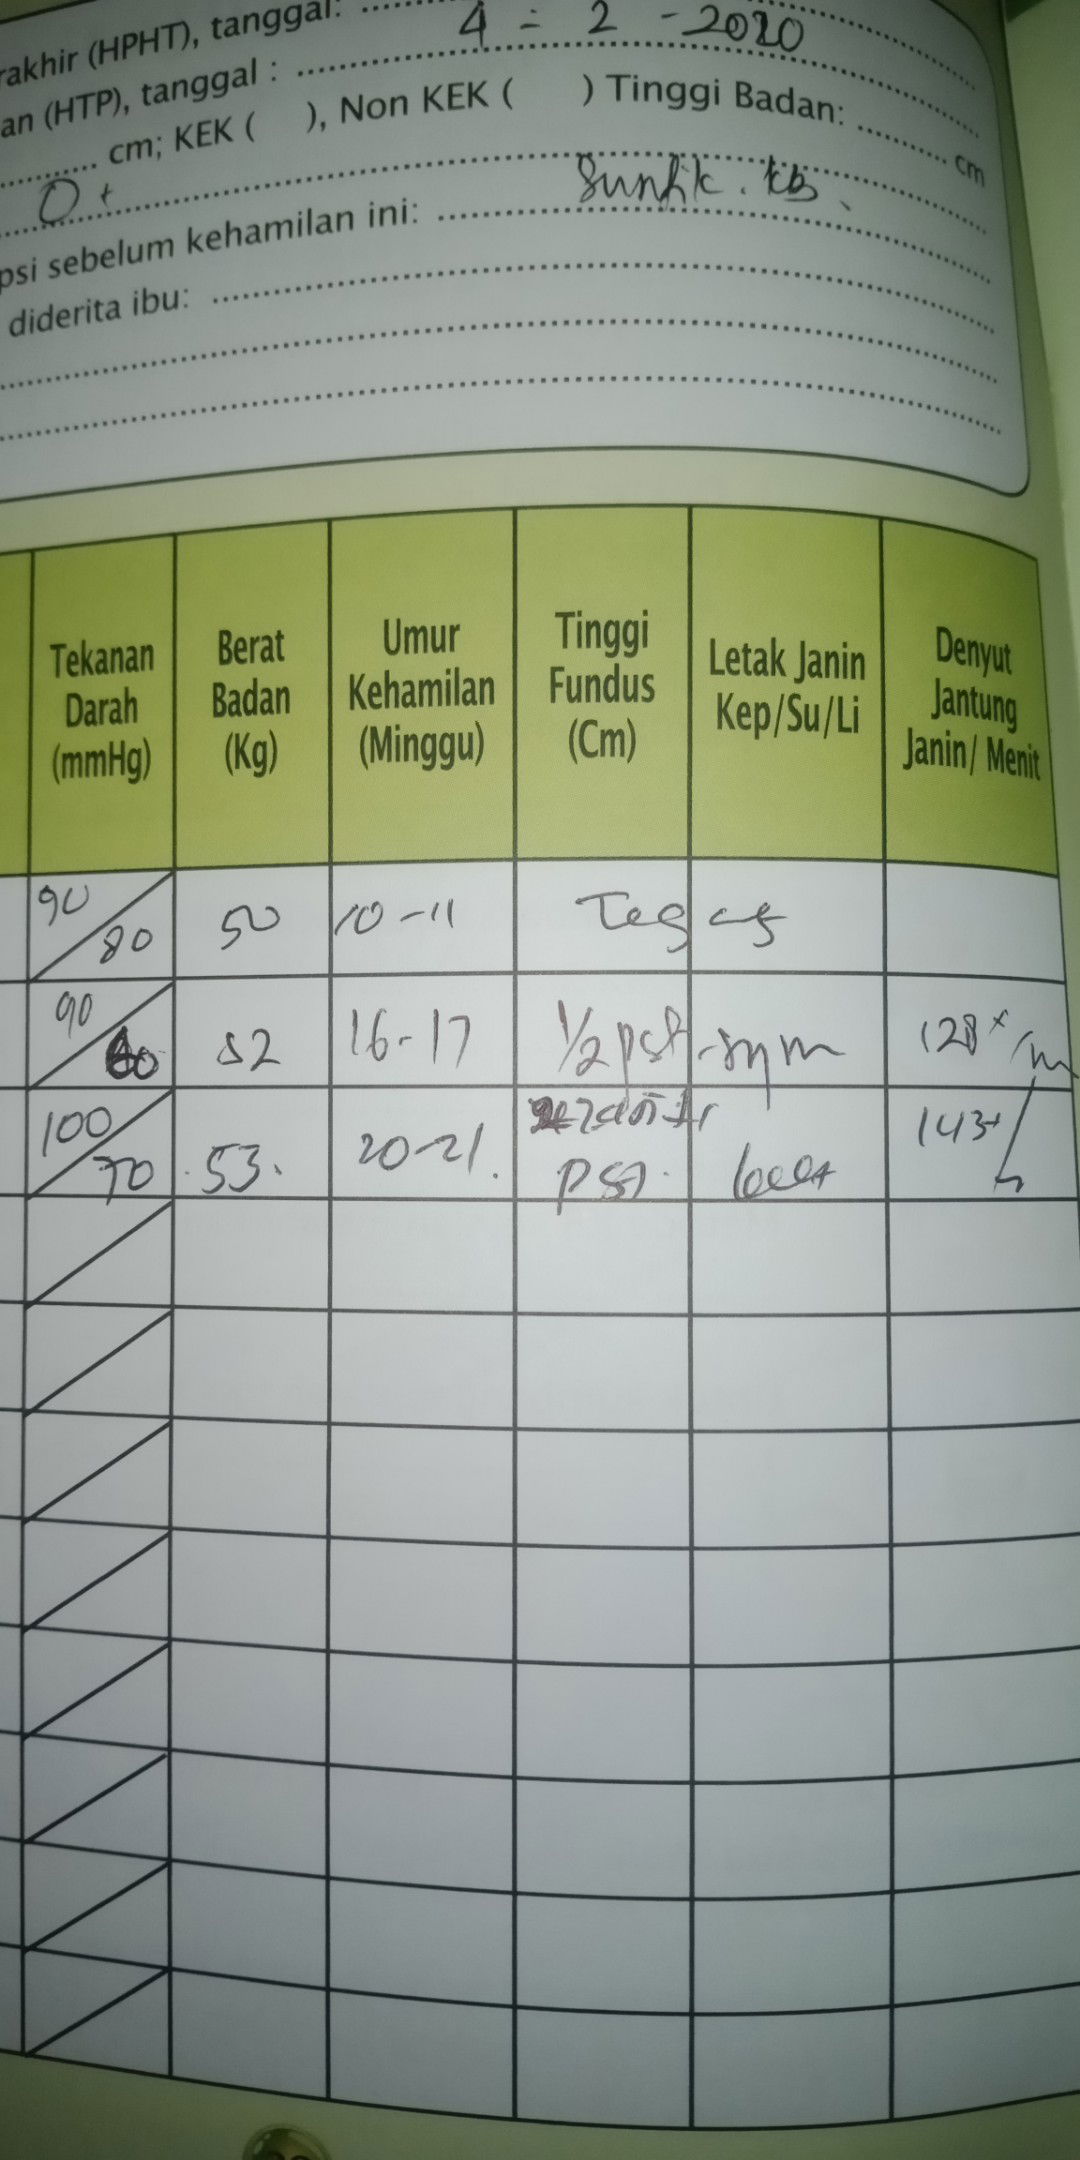 rakhir (HPHT), tanggal:
4 - 2 - 2020
an (HTP), tanggal :
cm; KEK ( ), Non KEK ( ) Tinggi Badan: cm
O+
psi sebelum kehamilan ini: Suntik. kb
diderita ibu:
Tekanan Darah (mmHg)
Berat Badan (Kg)
Umur Kehamilan (Minggu)
Tinggi Fundus (Cm)
Letak Janin Kep/Su/Li
Denyut Jantung Janin/ Menit
90/80 50 10-11
90/60 52 16-17 1/2 pst-sym 128x/m
100/70 53. 20-21. pst. 143x/